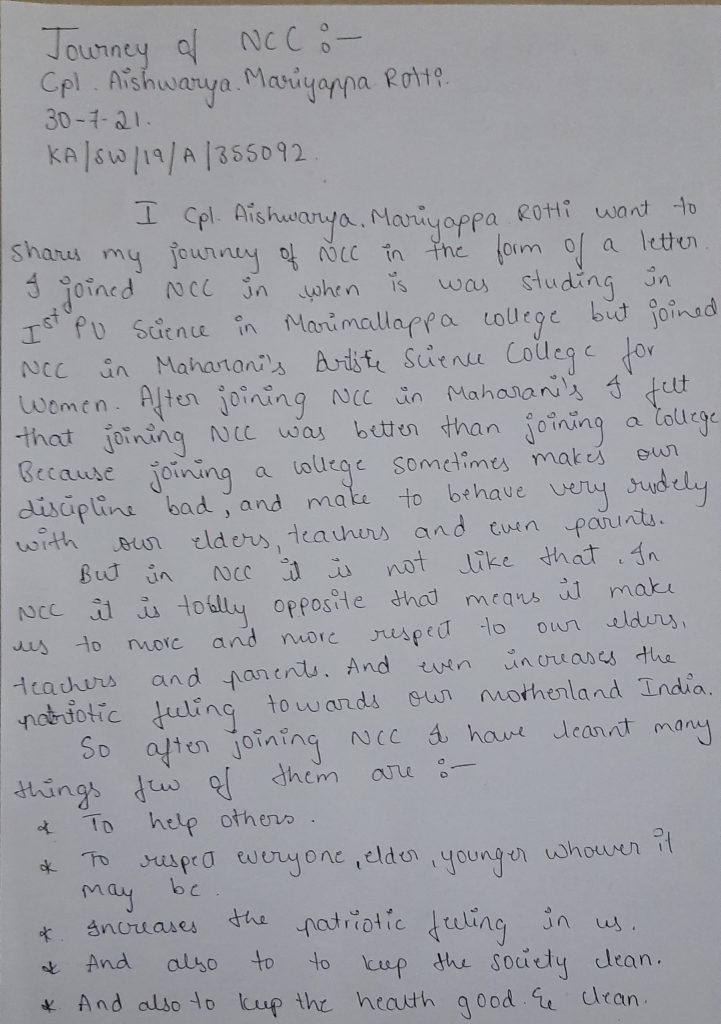 Journey of NCC :-
Cpl. Aishwarya. Mariyappa Rotti.
30-7-21.
KA/SW/19/A/355092.
I Cpl. Aishwarya. Mariyappa Rotti want to
shares my journey of NCC in the form of a letter.
I joined NCC in when is was studing in
Ist PU Science in Marimallappa college but joined
NCC in Maharani's Science College for
Women. After joining NCC in Maharani's I felt
that joining NCC was better than joining a College
Because joining a college sometimes makes our
discipline bad, and make to behave very rudely
with our elders, teachers and even parints.
But in NCC it is not like that. In
NCC it is totlly opposite that means it make
us to more and more respect to our elders,
teachers and parents. And even increases the
patriotic feeling towards our motherland India.
So after joining NCC I have learnt many
things few of them are :-
* To help others.
* To respect everyone, elder, younger whoever it
may be.
* Increases the patriotic feeling in us.
* And also to to keep the society clean.
* And also to keep the health good. & clean.